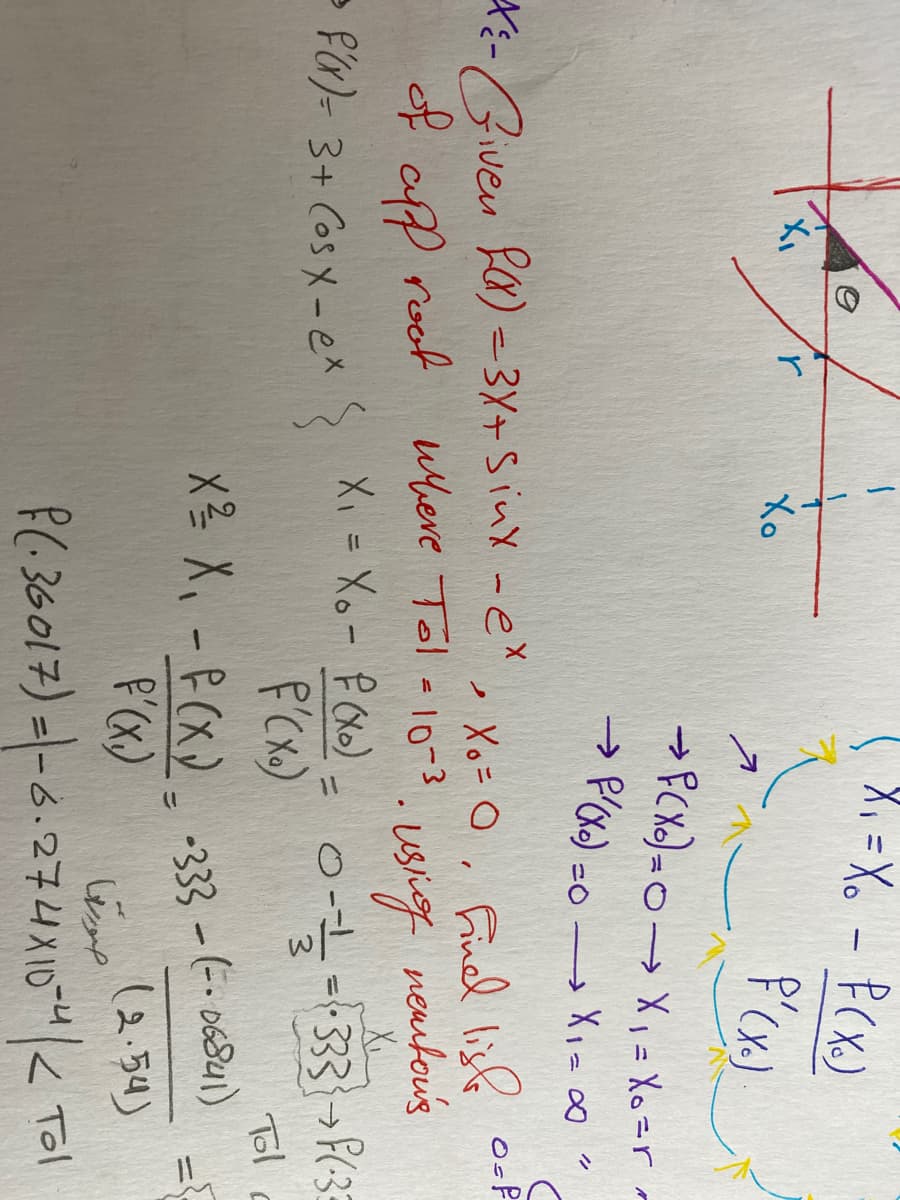 X₁ = X₀ - f(X₀) / f'(X₀)
X₁ θ r X₀
→ f(X₀) = 0 → X₁ = X₀ = r "
→ f'(X₀) = 0 → X₁ = ∞ "
X:- Given f(X) = 3X + Sin X - eˣ , X₀ = 0 , Find list
of app root where Tol = 10⁻³ . using newton's
f'(x) = 3 + Cos X - eˣ } X₁ = X₀ - f(X₀) / f'(X₀) = 0 - -1/3 = {.333} → f(.33
X₁
Tol
X2 = X₁ - f(X₁) / f'(X₁) = .333 - (-.06841) / (2.54) = {
f(.36017) = |-6.274X10⁻⁴| < Tol